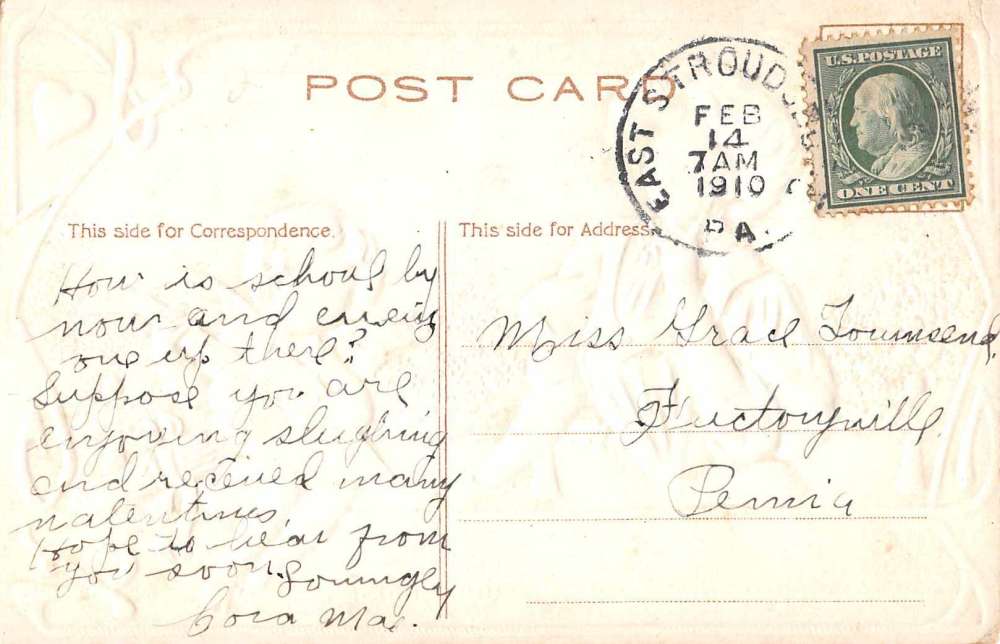 POST CARD
EAST STROUDSBURG
FEB
14
7 AM
1910
PA.
U.S. POSTAGE
ONE CENT
This side for Correspondence.
This side for Address.
How is school by
now and every
one up there?
Suppose you are
enjoying sleighing
and received many
valentines.
Hope to hear from
you soon. Lovingly
Cora Mae.
Miss Grace Townsend,
Factoryville
Penna